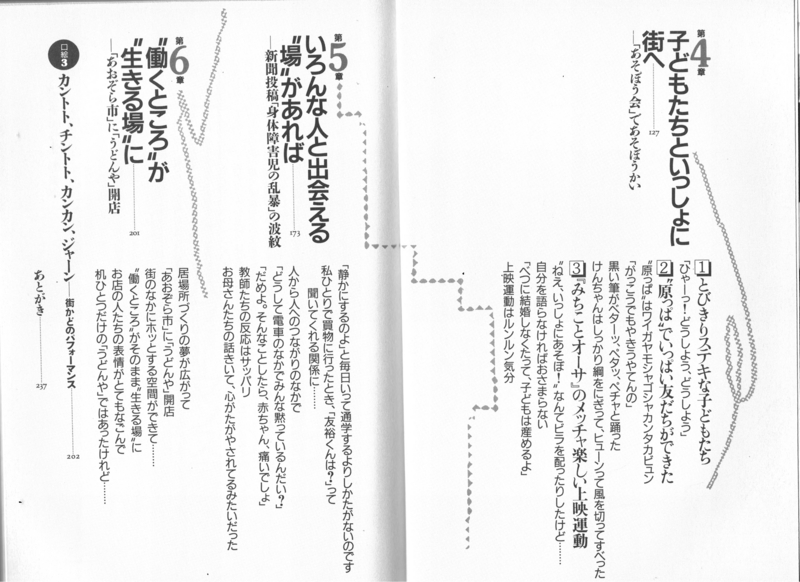 第4章
子どもたちといっしょに
街へ
127
―「あそぼう会」であそぼうかい
1 とびきりステキな子どもたち
「ひゃーっ！どうしよう、どうしよう」
2 “原っぱ”でいっぱい友だちができた
“原っぱ”はワイガヤモシャゴシャカンタカビュン
「がっこうでもやきうやてんの」
黒い筆がペターッ、ペタッ、ペチャと踊った
けんちゃんはしっかり綱をにぎって、ヒューンって風を切ってすべった
3 『みちことオーサ』のメッチャ楽しい上映運動
“ねえ、いっしょにあそぼ！”なんてビラを配ったりしたけど……
自分を語らなければおさまらない
「べつに結婚しなくたって、子どもは産めるよ」
上映運動はルンルン気分
第5章
いろんな人と出会える
“場”があれば
173
―新聞投稿「身体障害児の乱暴」の波紋
「静かにするのよ」と毎日いって通学するよりしかたがないのです
私ひとりで買物に行ったとき、「友裕くんは？」って
聞いてくれる関係に……
人から人へのつながりのなかで
「どうして電車のなかでみんな黙っているんだい？」
「だめよ。そんなことしたら、赤ちゃん、痛いでしょ」
教師たちの反応はサッパリ
お母さんたちの話きいて、心がたがやされてるみたいだった
第6章
“働くところ”が
“生きる場”に
201
―「あおぞら市」に「うどんや」開店
居場所づくりの夢が広がって
「あおぞら市」に「うどんや」開店
街のなかにホッとする空間ができて……
“働くところ”がそのまま“生きる場”に
お店の人たちの表情がとてもなごんで
机ひとつだけの「うどんや」ではあったけれど……
口絵3
カントト、チントト、カンカン、ジャーン――街かどのパフォーマンス
202
あとがき
237